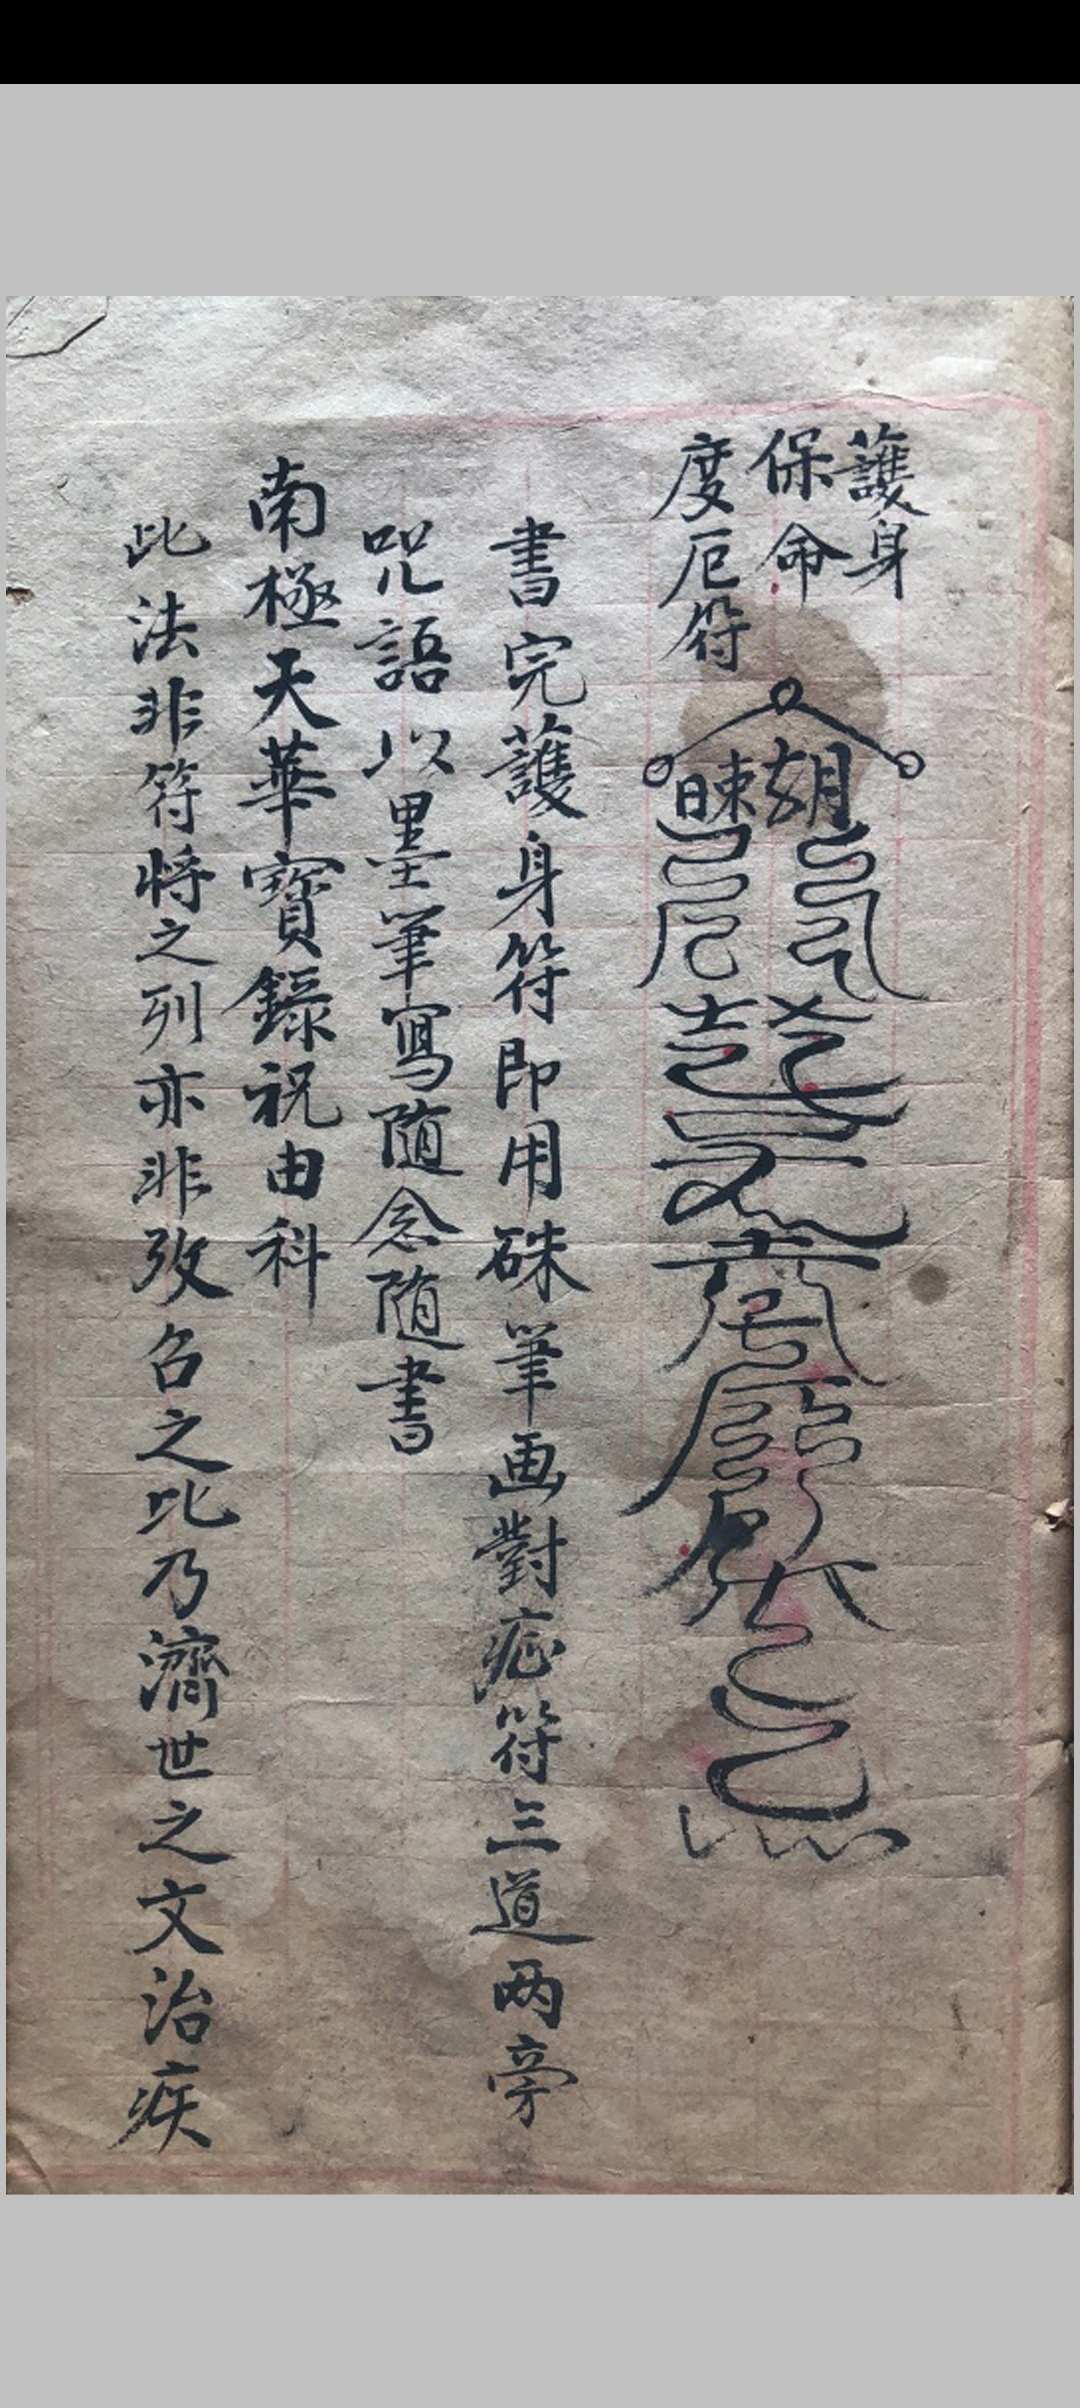 護身
保命
度厄符
書完護身符即用硃筆画對症符三道两旁
咒語以墨筆寫随念随書
南極天華寶錄祝由科
此法非符将之列亦非攷召之比乃濟世之文治疾